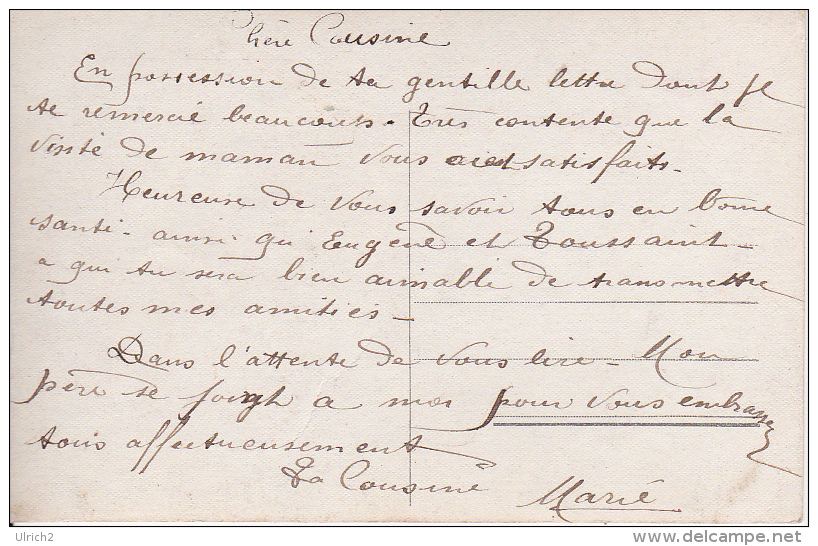 Chère Cousine
En possession de ta gentille lettre dont je
te remercie beaucoups. Très contente que la
visite de maman vous aient satisfaits.
Heureuse de vous savoir tous en bonne
santé. ainsi qui Eugène et Toussaint
a qui tu sera bien aimable de transmettre
toutes mes amities
Dans l'attente de vous lire - Mon
père se joint a moi pour vous embrasser
tous affectueusement
Ta Cousine
Marie
Ulrich2
www.delcampe.net